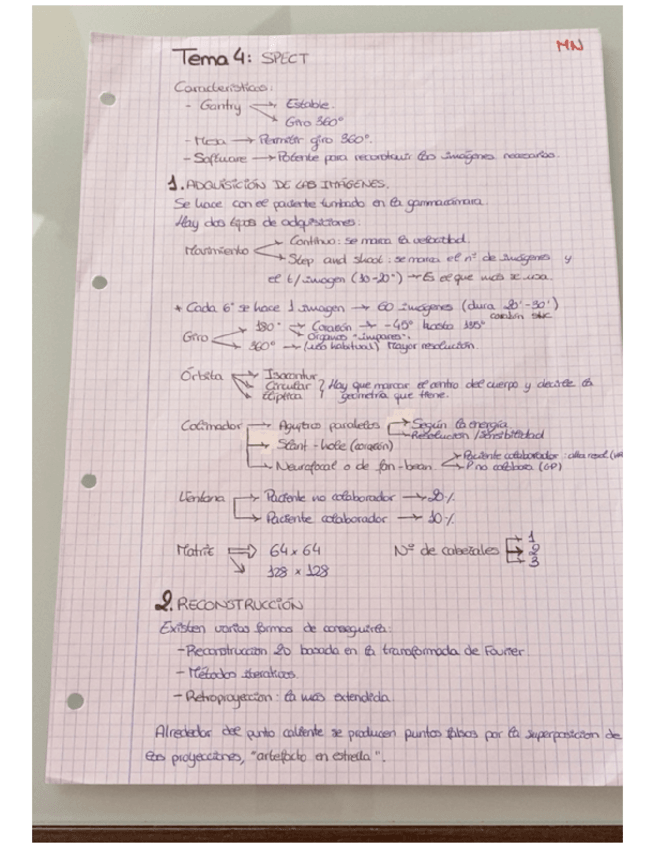 MN
Tema 4: SPECT
Características:
- Gantry → Estable.
→ Giro 360°
- Mesa → Permitir giro 360°.
- Software → Potente para reconstruir las imágenes necesarias.
1. ADQUISICIÓN DE LAS IMÁGENES.
Se hace con el paciente tumbado en la gammacámara.
Hay dos tipos de adquisiciones:
Movimiento → Continuo: se marca la velocidad.
→ Step and shoot: se marca el nº de imágenes y
el t/imagen (10-20") → Es el que más se usa.
* Cada 6° se hace 1 imagen → 60 imágenes (dura 20'-30')
Giro → 180° → Corazón → -45° hasta 135°
→ Órganos "impares".
→ 360° → (uso habitual) Mayor resolución.
Órbita → Isocontur
→ Circular } Hay que marcar el centro del cuerpo y decirle la
→ Elíptica } geometría que tiene.
Colimador → Agujeros paralelos → Según la energía
→ Resolución / sensibilidad
→ Slant-hole (corazón)
→ Neurofocal o de fan-bean → Paciente colaborador: alta resol
→ P no colabora (GP)
Ventana → Paciente no colaborador → 20%
→ Paciente colaborador → 10%
Matriz ⇒ 64 x 64
→ 128 x 128
Nº de cabezales → 1
→ 2
→ 3
2. RECONSTRUCCIÓN
Existen varias formas de conseguirla:
- Reconstrucción 2D basada en la transformada de Fourier.
- Métodos iterativos.
- Retroproyección: la más extendida.
Alrededor del punto caliente se producen puntos falsos por la superposición de
las proyecciones, "artefacto en estrella".